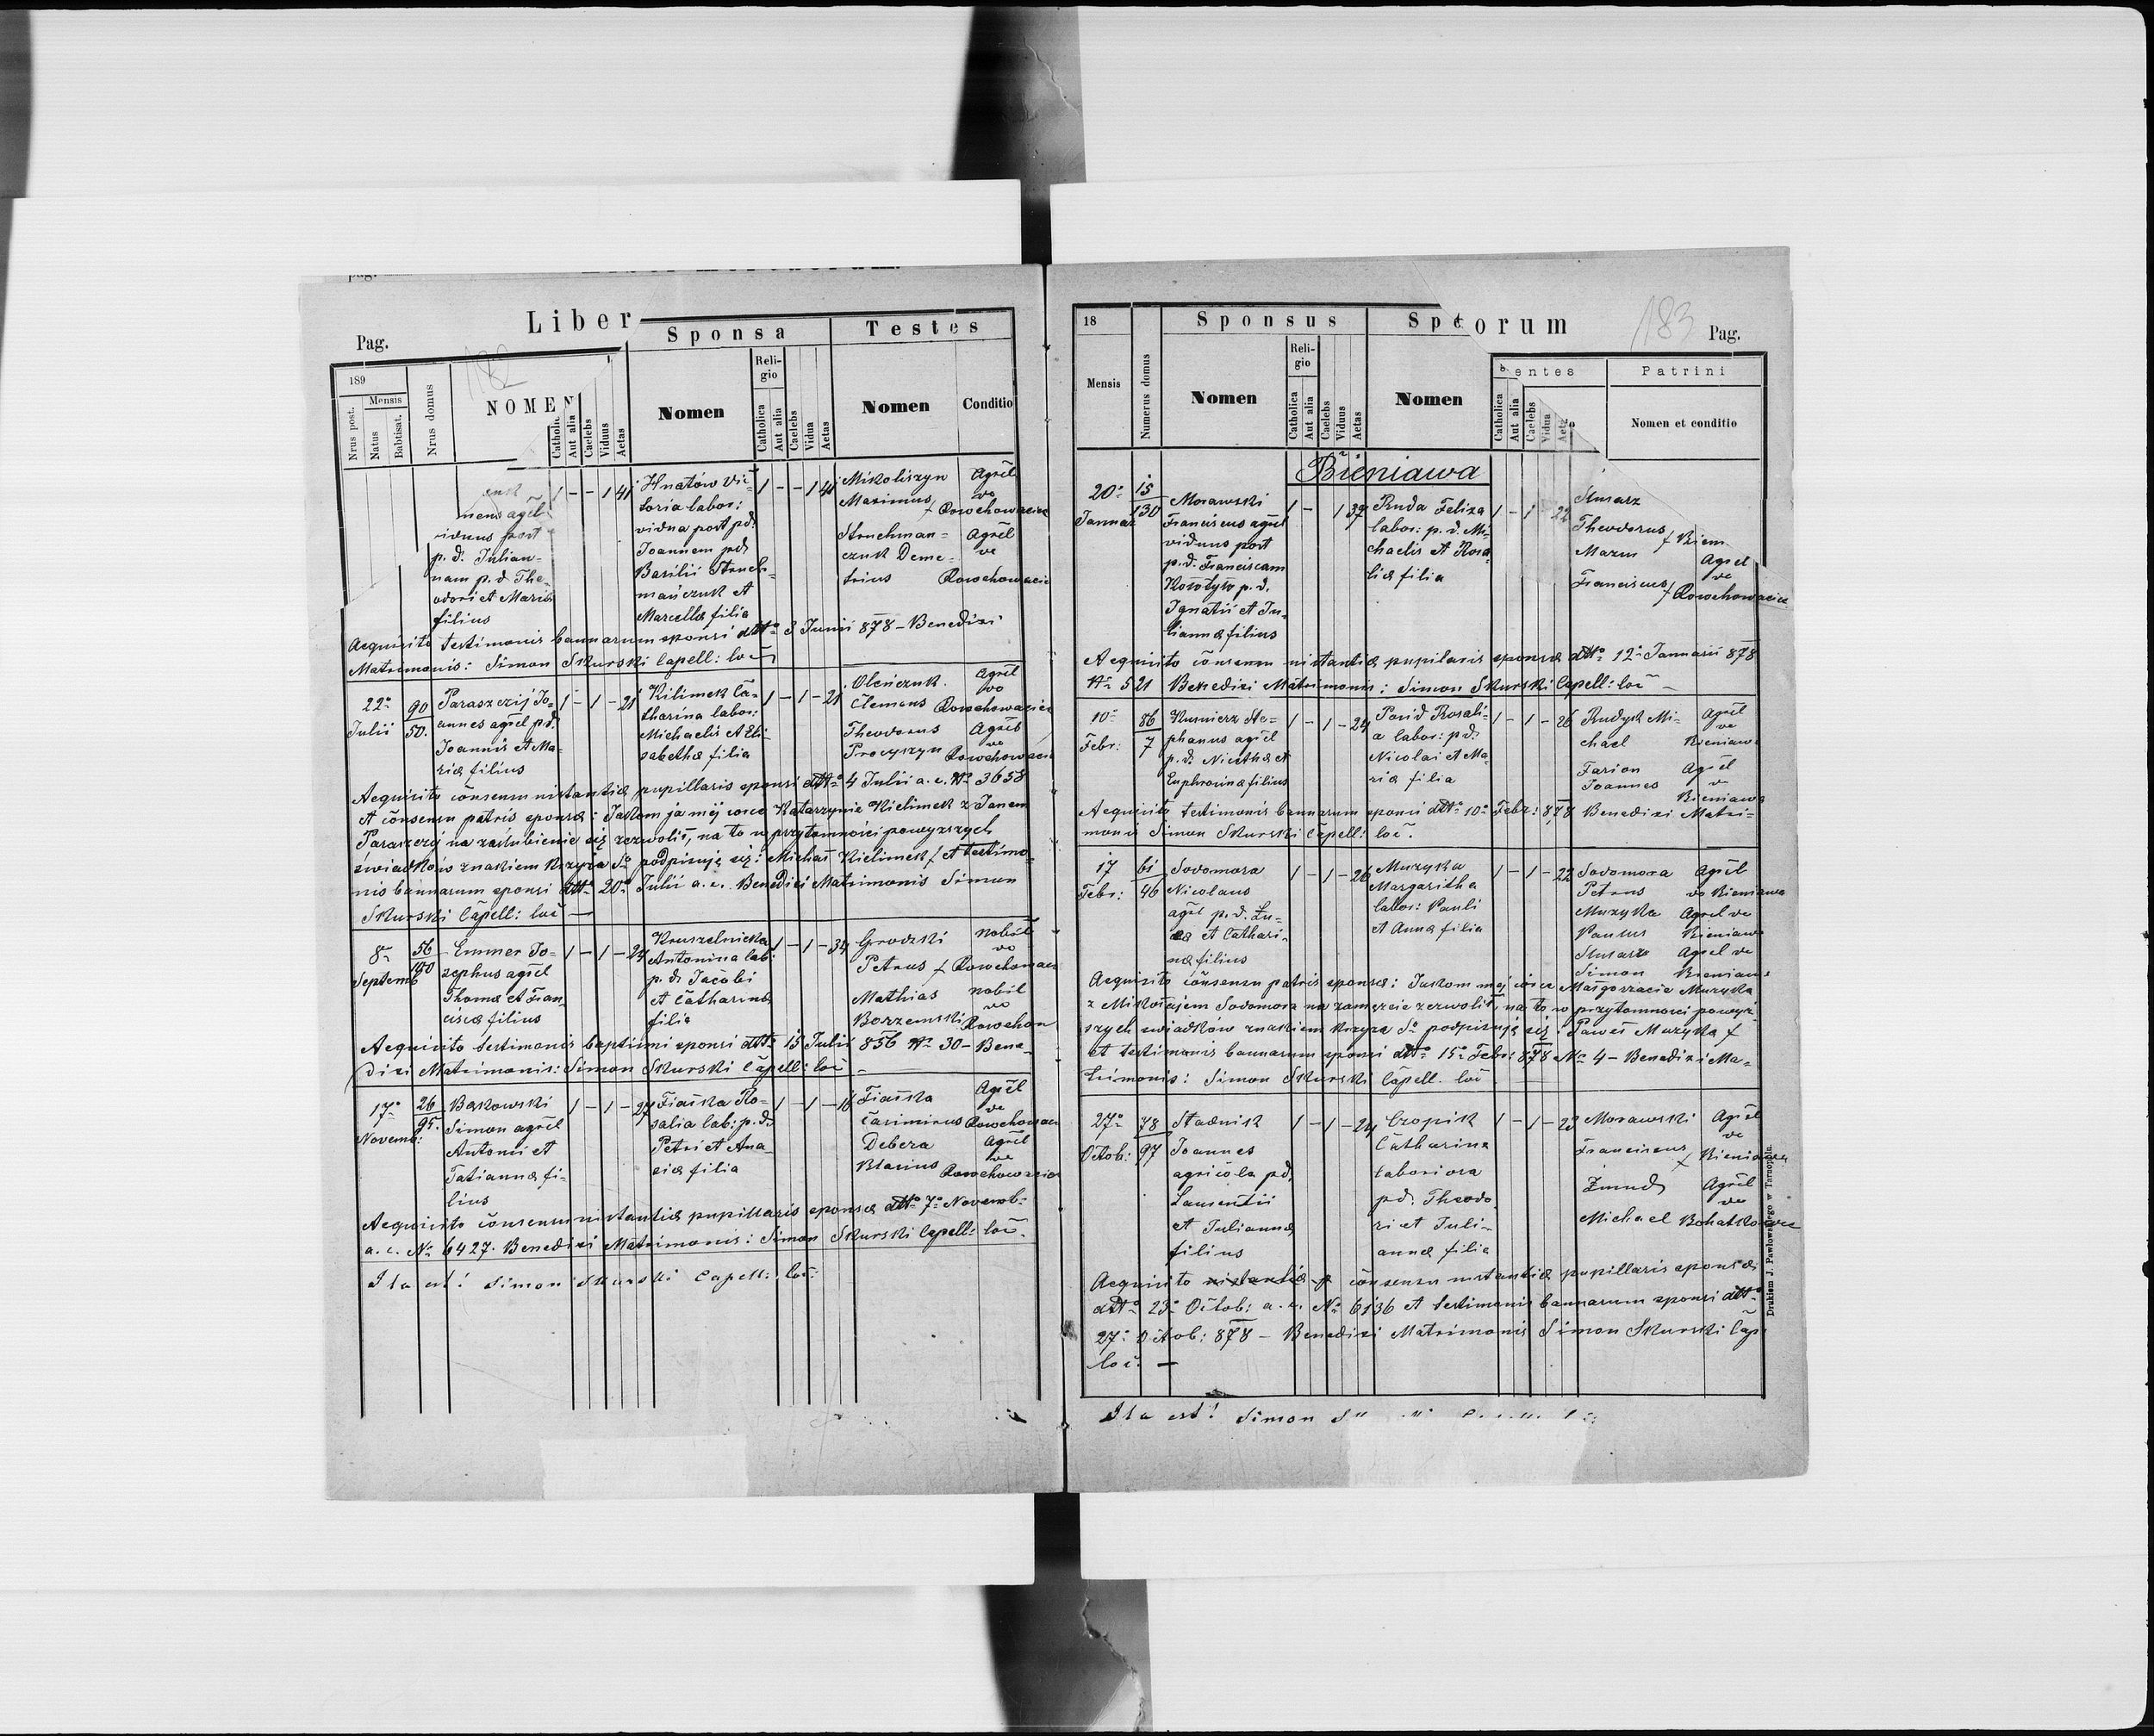 Pag.
Liber
182
Sponsa
Testes
189
Mensis
Nrus post.
Natus
Babtisat.
Nrus domus
NOMEN
Catholic
Aut alia
Caelebs
Viduus
Aetas
Nomen
Religio
Catholica
Aut alia
Caelebs
Vidua
Aetas
Nomen
Conditio
mens agrĕl
viduus post
p.d. Julian-
nam p.d. The-
odori et Mariæ
filius
1 - - 1 41
Hnatów Vic-
toria labor:
vidua post pd.
Joannem pd.
Basilii Struch-
mańczuk et
Marcellæ filia
1 - - 1 40
Mikoliszyn Agrĕl
Maximus + ve Rosochowaciec
Struchman- Agrĕl
czuk Deme- ve
trius Rosochowaciec
Acquisito testimonio bannorum sponsi ddto 3 Junii 878 - Benedixi
Matrimonio: Simon Skurski Capell: loc
22a Julii
90
50.
Paraszczij Jo-
annes agrĕl p.d.
Joannis et Ma-
riæ filius
1 - 1 - 21
Kilimek Ca-
tharina labor:
Michaelis et Eli-
sabethæ filia
1 - 1 - 21
Oleńczuk Agrĕl
Clemens ve Rosochowaciec
Theodorus Agrĕl
Procyszyn ve Rosochowaciec
Acquisito consensu nistantiæ pupillaris sponsi ddto 4 Julii a.c. No 3658
et consensu patris sponsæ: Jakom ja mej córce Katarzynie Kielimek z Janem
Paraszczij na zaślubienie się zezwolił, na to w przytomności powyższych
świadków znakiem krzyża So podpisuję się: Michał Kielimek + et testimo-
nio bannorum sponsi ddto 20o Julii a.c. Benedixi Matrimonio Simon
Skurski Capell: loc —
8a Septemb
56
150
Emmer Jo-
zephus agrĕl
Thomæ et Fran-
ciscæ filius
1 - 1 - 24
Kruszelnicka
Antonina lab:
p.d. Jacobi
et Catharinæ
filia
1 - 1 - 34
Grodzki nobil
Petrus + ve Rosochowaciec
Mathias nobil
Borzemski ve Rosochow
Acquisito testimonio baptismi sponsi ddto 15 Julii 856 No 30 - Bene-
dixi Matrimonio: Simon Skurski Capell: loc -
17o Novemb:
26
95.
Baskowski
Simon agrĕl
Antonii et
Tatiannæ fi-
lius
1 - 1 - 27
Fiałka Ro-
salia lab: p.d.
Petri et Ana-
ciæ filia
1 - 1 - 16
Fiałka Agrĕl
Casimirus ve Rosochowac
Debera Agrĕl
Blasius ve Rosochowaciec
Acquisito consensu nistantiæ pupillaris sponsæ ddto 7o Novemb:
a.c. No 6427. Benedixi Matrimonio: Simon Skurski Capell: loc.
Ita est! Simon Skurski Capell: loc:
18
Sponsus
Sporum
183
Pag.
Mensis
Numerus domus
Nomen
Religio
Catholica
Aut alia
Caelebs
Viduus
Aetas
Nomen
Catholica
Aut alia
Caelebs
Vidua
entes
Patrini
Nomen et conditio
Bieniawa
20o Januar
15
130
Morawski
Franciscus agrĕl
viduus post
p.d. Franciscam
Kowtyło p.d.
Ignatii et Ju-
liannæ filius
1 - 1 37
Ruda Felixa
labor: p.d. Mi-
chaelis et Rosa-
liæ filia
1 - 1 22
Slusarz
Theodorus + Bien
Mazur Agrĕl
Franciscus + ve Rosochowaciec
Acquisito consensu nistantiæ pupilaris sponsæ ddto 12o Januarii 878
No 521 Benedixi Matrimonio: Simon Skurski Capell: loc -
10o Febr:
86
7
Kusnierz Ste-
phanus agrĕl
p.d. Nicethæ et
Euphrosinæ filius
1 - 1 - 24
Pavid Rosali-
a labor: p.d.
Nicolai et Ma-
riæ filia
1 - 1 - 26
Rudyk Mi- Agrĕl
chael ve Bieniaw
Farion Agrĕl
Joannes ve Bieniawa
Acquisito testimonio bannorum sponsi ddto 10o Febr: 878 Benedixi Matri-
monio Simon Skurski Capell: loc.
17 Febr:
61
46
Sodomora
Nicolaus
agrĕl p.d. Lu-
cæ et Cathari-
næ filius
1 - 1 - 26
Muzyka
Margaritha
labor: Pauli
et Annæ filia
1 - 1 - 22
Sodomora Agrĕl
Petrus ve Bieniawa
Muzyka Agrĕl ve
Paulus Bieniaw
Slusarz Agrĕl ve
Simon Bieniawa
Acquisito consensu patris sponsæ: Jakom mej córce Małgorzacie Muzyka
z Mikołajem Sodomora na zamęzcie zezwolił, na to w przytomności powyż-
szych swiadków znakiem krzyża So podpisuję się: Paweł Muzyka +
et testimonio bannorum sponsi ddto 15o Febr: 878 No 4 - Benedixi Ma-
trimonio: Simon Skurski Capell. loc
27o Octob:
78
97
Stadnik
Joannes
agricola p.d.
Laurentii
et Juliannæ
filius
1 - 1 - 24
Cropik
Catharina
laboriosa
p.d. Theodo
ri et Juli-
annæ filia
1 - 1 - 23
Morawski Agrĕl
Franciscus + ve Bieniawa
Żmud Agrĕl
Michael ve Bohatkowce
Acquisito nistantiæ p consensu nistantiæ pupillaris sponsæ
ddto 23o Octob: a.c. No 6136 et testimonio bannorum sponsi ddto
27o Octob: 878 - Benedixi Matrimonio Simon Skurski Cap.
loc. —
Ita est! Simon
Drukiem J. Pawłowskiego w Tarnopolu.